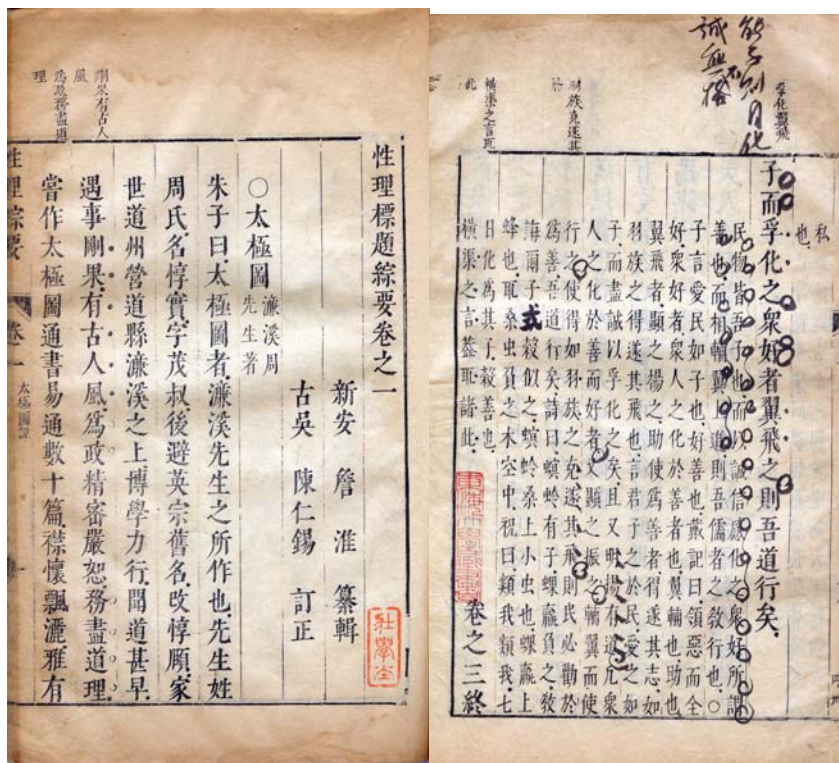 剛果有古人
風
爲政務盡道
理
性理標題綜要卷之一
新安 詹淮 纂輯
古吳 陳仁錫 訂正
○太極圖 濂溪周
先生著
朱子曰太極圖者濂溪先生之所作也先生姓
周氏名惇實字茂叔後避英宗舊名改惇頤家
世道州營道縣濂溪之上博學力行聞道甚早
遇事剛果有古人風爲政精密嚴恕務盡道理
嘗作太極圖通書易通數十篇襟懷飄灑雅有
性理綜要 卷一 太極圖說
孚化翼飛
羽族克遂其
於
橫渠之言玭
此
私
也
子而孚化之衆好者翼飛之則吾道行矣
民物皆吾子也而以誠信感化之衆好所謂
善也而相輔翼上進則吾儒者之敎行也○
子言愛民如子也好善也戴記曰領惡而全
好衆好者衆人之化於善者也翼輔也助也
翼飛者顯之揚之助使爲善者得遂其志如
羽族之得遂其飛也言君子之於民愛之如
子而盡誠以孚化之矣且又明揚有道凡衆
人之化於善而好者又顯之振之輔翼而使
行之使得如羽族之克遂其飛則民必勸於
爲善吾道行矣詩曰螟蛉有子蜾蠃負之敎
誨爾子式穀似之螟蛉桑上小虫也蜾蠃土
蜂也玭桑虫負之木空中祝曰類我類我七
日化爲其子穀善也
橫渠之言蓋玭諸此
卷之三終